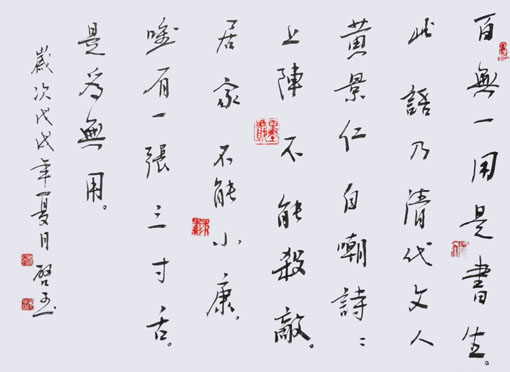 百無一用是書生。
此語乃清代文人
黄景仁自嘲詩：
上陣不能殺敵。
居家不能小康。
唯有一張三寸舌。
是為無用。
歲次戊戌年夏月啓玉